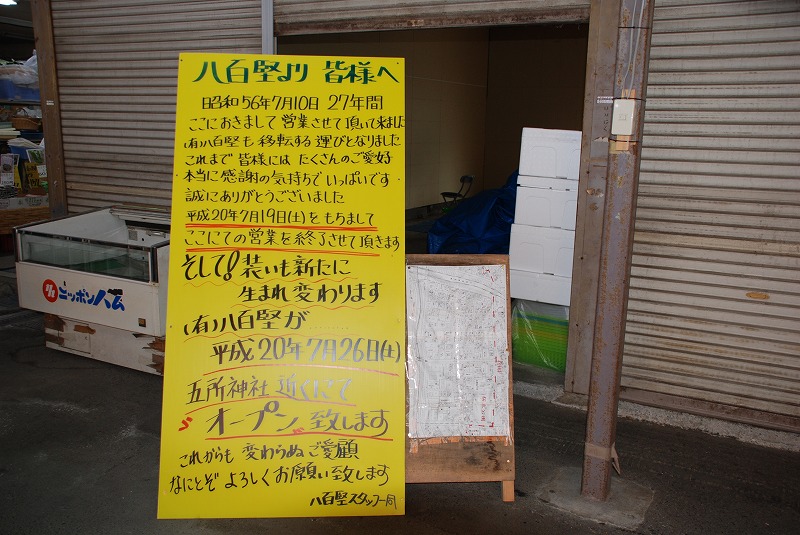 八百堅より 皆様へ
昭和56年7月10日 27年間
ここにおきまして営業させて頂いて来ました
(有)八百堅も移転する運びとなりました
これまで皆様にはたくさんのご愛好
本当に感謝の気持ちでいっぱいです
誠にありがとうございました
平成20年7月19日(土)をもちまして
ここにての営業を終了させて頂きます
そして!装いも新たに
生まれ変わります
(有)八百堅が
平成20年7月26日(土)
五所神社近くにて
オープン致します
これからも変わらぬご愛顧
なにとぞよろしくお願い致します
八百堅スタッフ一同
ニッポンハム